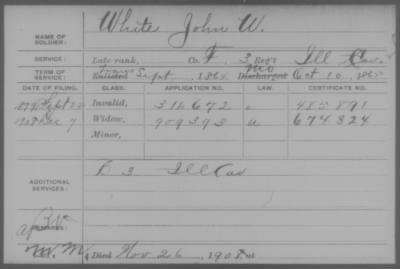 White John W.
NAME OF SOLDIER:
SERVICE: Late rank, Co. F, 3 Reg't Ill Cav.
TERM OF SERVICE: Enlisted Sept , 1864 Discharged Oct 10, 1865
DATE OF FILING. CLASS. APPLICATION NO. LAW. CERTIFICATE NO.
Sept Invalid, 316672 485891
Dec 7 Widow, 909393 674324
Minor,
ADDITIONAL SERVICES: B 3 Ill Cav
REMARKS:
Died Nov 26, 1908, at